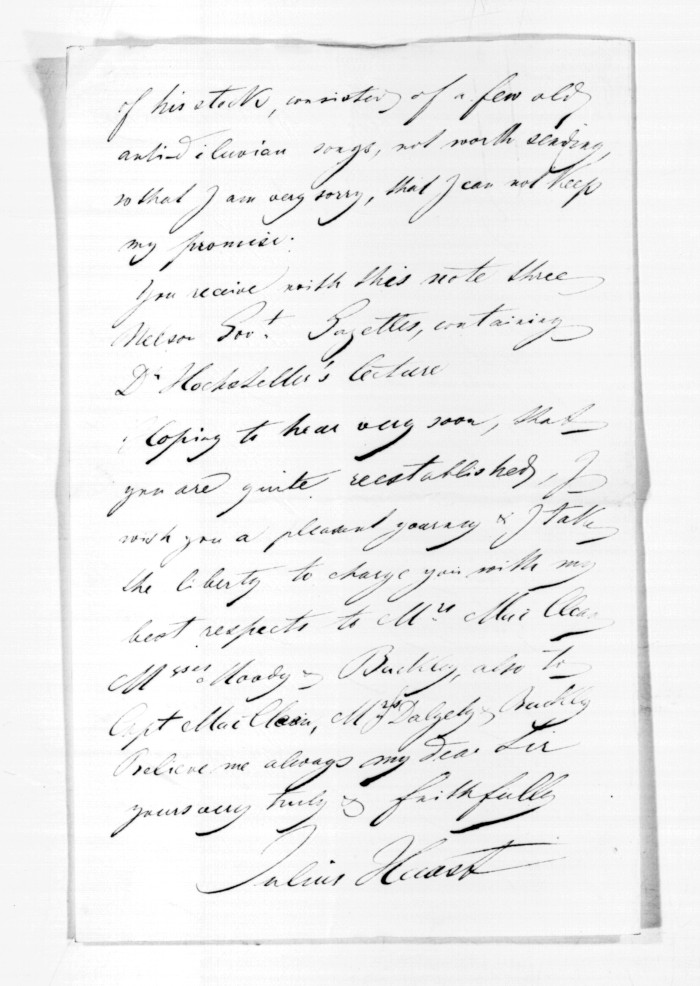 of his stock, consisted of a few old
antidiluvian songs, not worth sending,
so that I am very sorry, that I can not keep
my promise.
You receive with this note three
Nelson Govt. Gazettes, containing
Dr Hochstetter's lecture
Hoping to hear very soon, that
you are quite reestablished, I
wish you a pleasant yourney & I take
the liberty to charge you with my
best respects to Mrs Mac Clean
Messrs Moody & Buckley, also to
Capt MacClean, Mrs Dalgety & Buckley
Believe me always my dear Sir
yours very truly & faithfully
Julius Haast